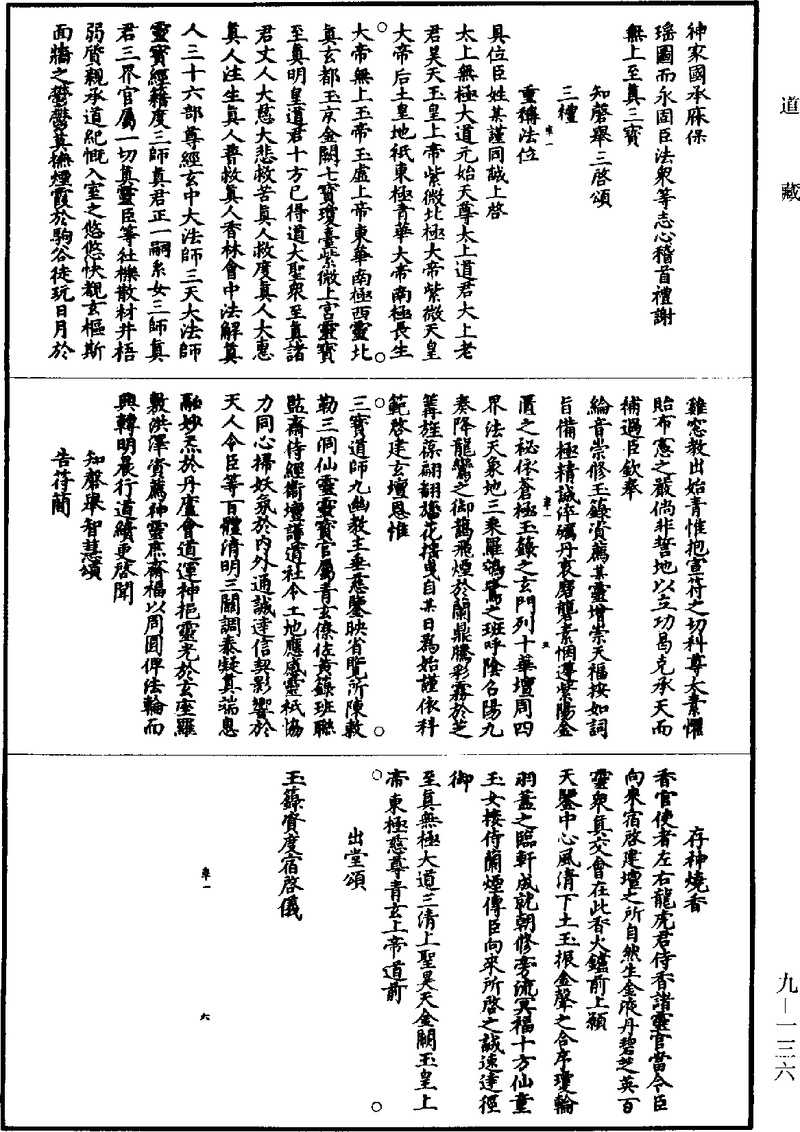 道藏
神家國承庥保
瑤圖而永固臣法衆等志心稽首禮謝
無上至真三寶
知磬舉三啓頌
三禮
重稱法位
具位臣姓某謹同誠上啓
太上無極大道元始天尊太上道君太上老
君昊天玉皇上帝紫微北極大帝紫微天皇
大帝后土皇地祇東極青華大帝南極長生
大帝無上玉帝玉虛上帝東華南極西靈北
真玄都玉京金闕七寶瓊臺紫微上宮靈寶
至真明皇道君十方已得道大聖衆至真諸
君丈人大慈大悲救苦真人救度真人大惠
真人注生真人普救真人香林會中法解真
人三十六部尊經玄中大法師三天大法師
靈寶經籍度三師真君正一嗣系女三師真
君三界官屬一切真靈臣等社櫟散材井梧
弱質覯承道紀慨入室之悠悠快覩玄樞斯
面牆之鬱鬱莫撫煙霞於駒谷徒玩日月於
雞窓教出始青惟抱宣符之切科尊太素懼
貽布憲之嚴倘非誓地以立功曷克承天而
補過臣欽奉
綸音崇修玉籙資薦某靈增崇天福按如詞
旨備極精誠淬礪丹衷磨礱素悃遵紫陽金
匱之秘依蒼極玉籙之玄門列十華壇周四
界法天象地三乘羅鴻鷺之班呼陰召陽九
奏降龍鸞之御鵲飛煙於蘭鼎騰彩霧於芝
篝旌葆翩翩旛花搖曳自某日爲始謹依科
範啓建玄壇恩惟
三寶道師九幽教主垂慈鑒映省覽所陳敕
勒三洞仙靈靈寶官屬青玄僚佐黃籙班聯
監齋侍經衛壇護道社令土地應感靈祇協
力同心掃妖氛於內外通誠達信契影響於
天人令臣等百體清明三關調泰凝真端息
融妙炁於丹廬會道運神挹靈光於玄座羅
敷洪澤資薦神靈庶齋福以周圓俾法輪而
興轉明晨行道續更啓聞
知磬舉智慧頌
告符簡
存神燒香
香官使者左右龍虎君侍香諸靈官當令臣
向來宿啓建壇之所自然生金液丹碧芝英百
靈衆真交會在此香火鑪前上願
天鑒中心風清下土玉振金聲之合序瓊輪
羽蓋之臨軒成就朝修旁流冥福十方仙童
玉女接侍蘭煙傳臣向來所啓之誠速達徑
御
至真無極大道三清上聖昊天金闕玉皇上
帝東極慈尊青玄上帝道前
出堂頌
玉籙資度宿啓儀
九—一三六